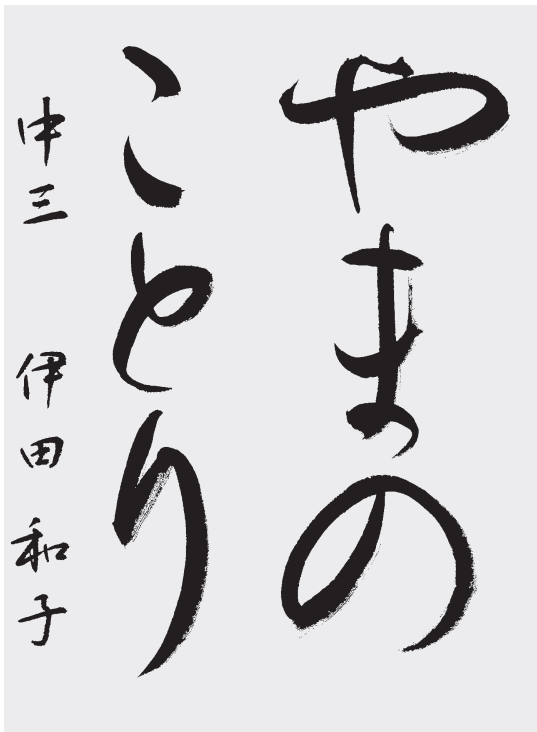 やまの
ことり
中三 伊田和子